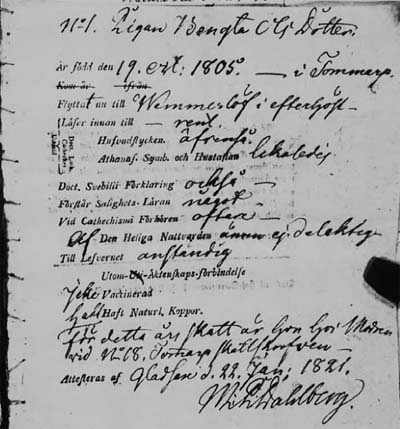 No 1. Pigan Bengta Ols Dotter
Är född den 19. Oct: 1805. — i Tommarp
Kom år ifrån
Flyttat nu till Wemmerlöf i efterhöst
Läser innan till — rent.
Hufvudstycken. äfvenså.
Athanas. Symb. och Hustaflan likaledes
Doct. Svebilii Förklaring också —
Förstår Salighets-Läran något —
Vid Catechismi Förhören oftare —
Af Den Heliga Nattvarden ännu ej delaktig
Till Lefvernet anständig
Utom Äktenskaps-förbindelse
Icke Vaccinerad
Haft Naturl. Koppor.
För detta års skatt är hon hos Modren
vid N 18. Tomarps skattskrefven —
Attesteras af Gladsax d. 22. Jan: 1821.
Wahlberg.